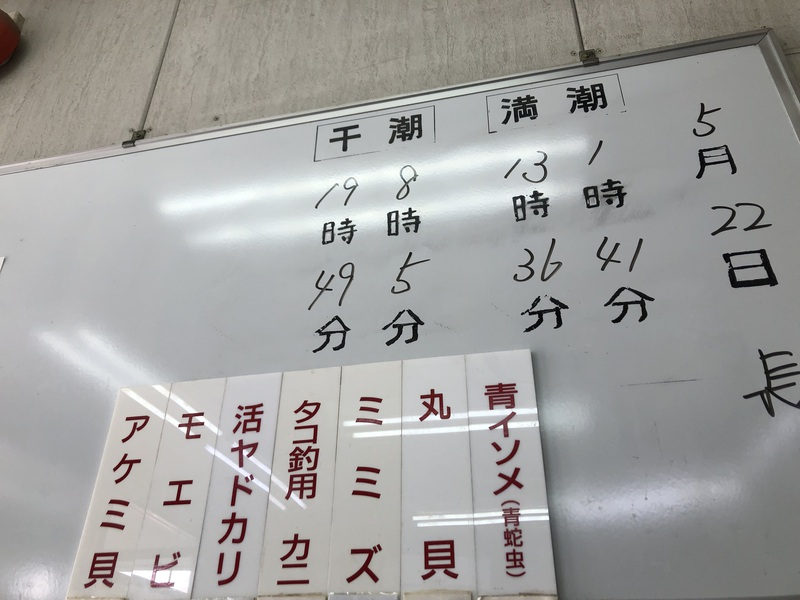 5月22日
長
満潮
1時41分
13時36分
干潮
8時5分
19時49分
青イソメ(青蛇虫)
丸貝
ミミズ
タコ釣用カニ
活ヤドカリ
モエビ
アケミ貝